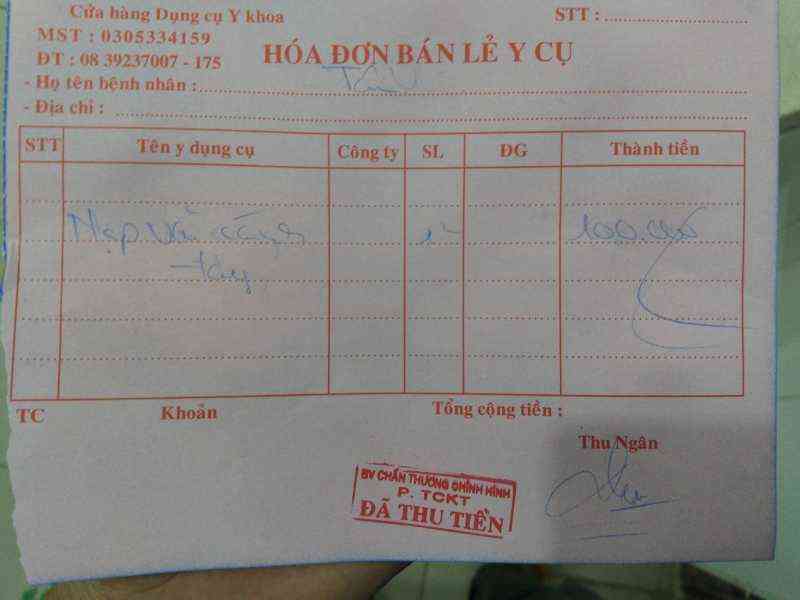 Cửa hàng Dụng cụ Y khoa
STT :
MST : 0305334159
ĐT : 08 39237007 - 175
HÓA ĐƠN BÁN LẺ Y CỤ
- Họ tên bệnh nhân :
- Địa chỉ :
STT Tên y dụng cụ Công ty SL ĐG Thành tiền
Nẹp vải cánh 100.000
tay
TC Khoản Tổng cộng tiền :
Thu Ngân
BV CHẤN THƯƠNG CHỈNH HÌNH
P. TCKT
ĐÃ THU TIỀN